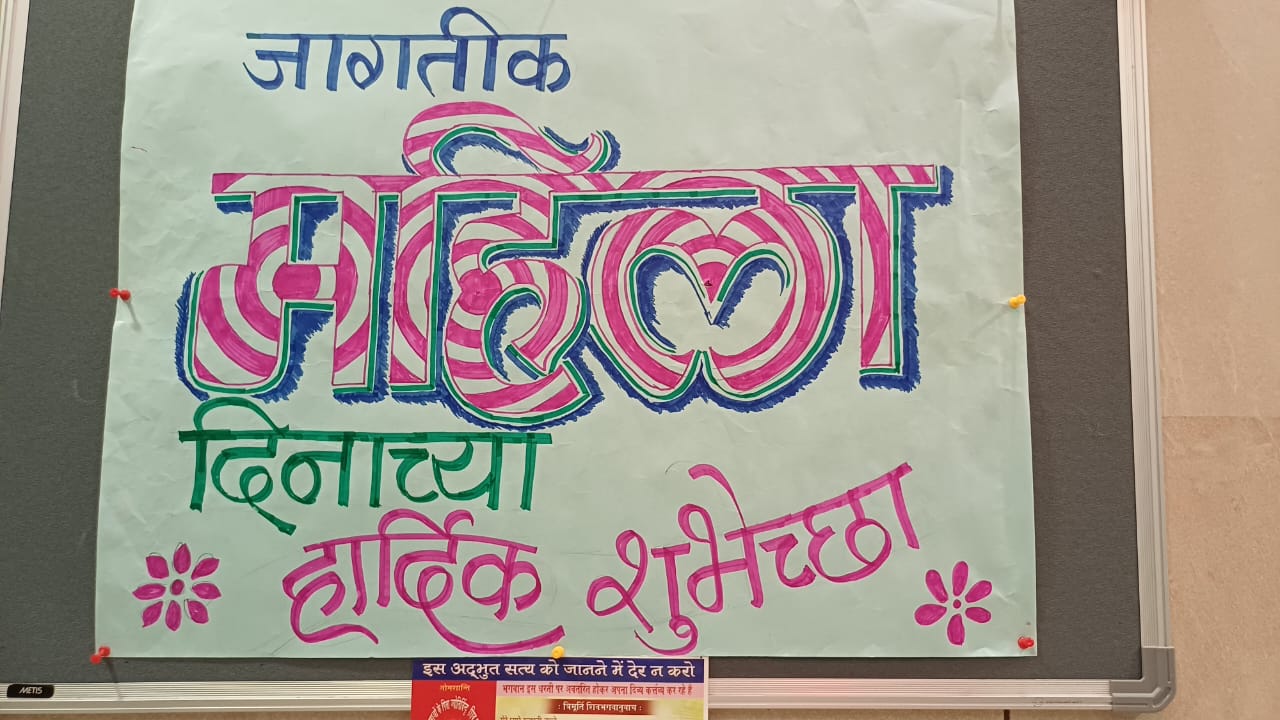 जागतीक
महिला
दिनाच्या
हार्दिक शुभेच्छा
इस अद्भुत सत्य को जानने में देर न करो
भगवान इस धरती पर अवतरित होकर अपना दिव्य कर्त्तव्य कर रहे हैं
: त्रिमूर्ति शिवभगवानुवाच :
METIS